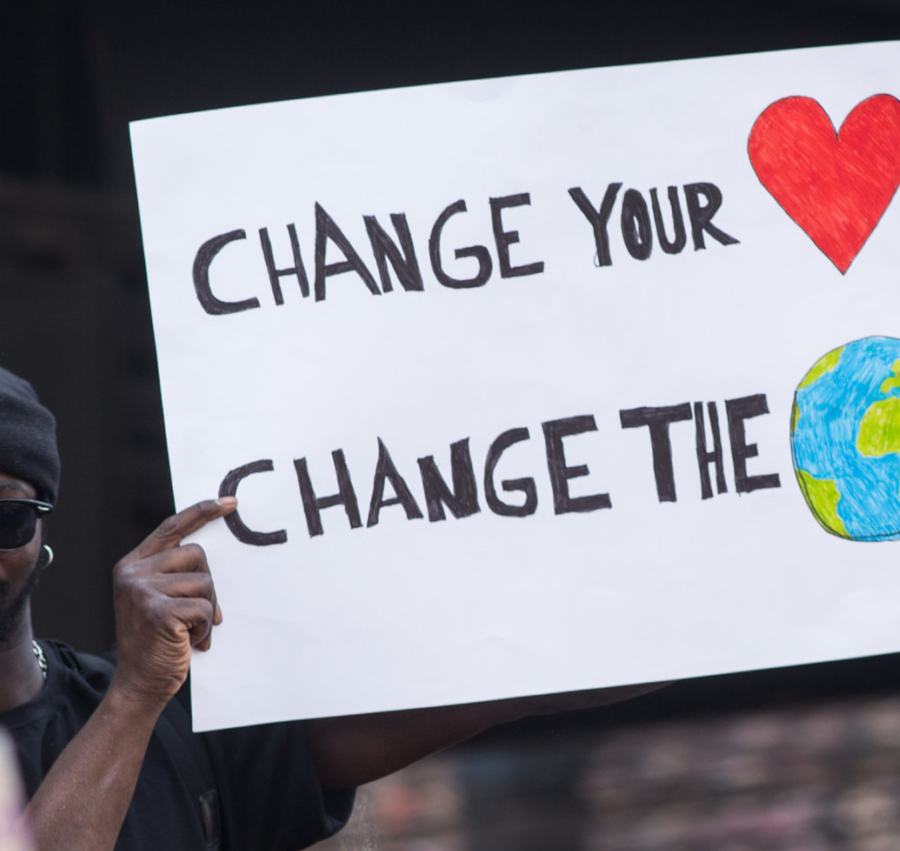 CHANGE YOUR
CHANGE THE